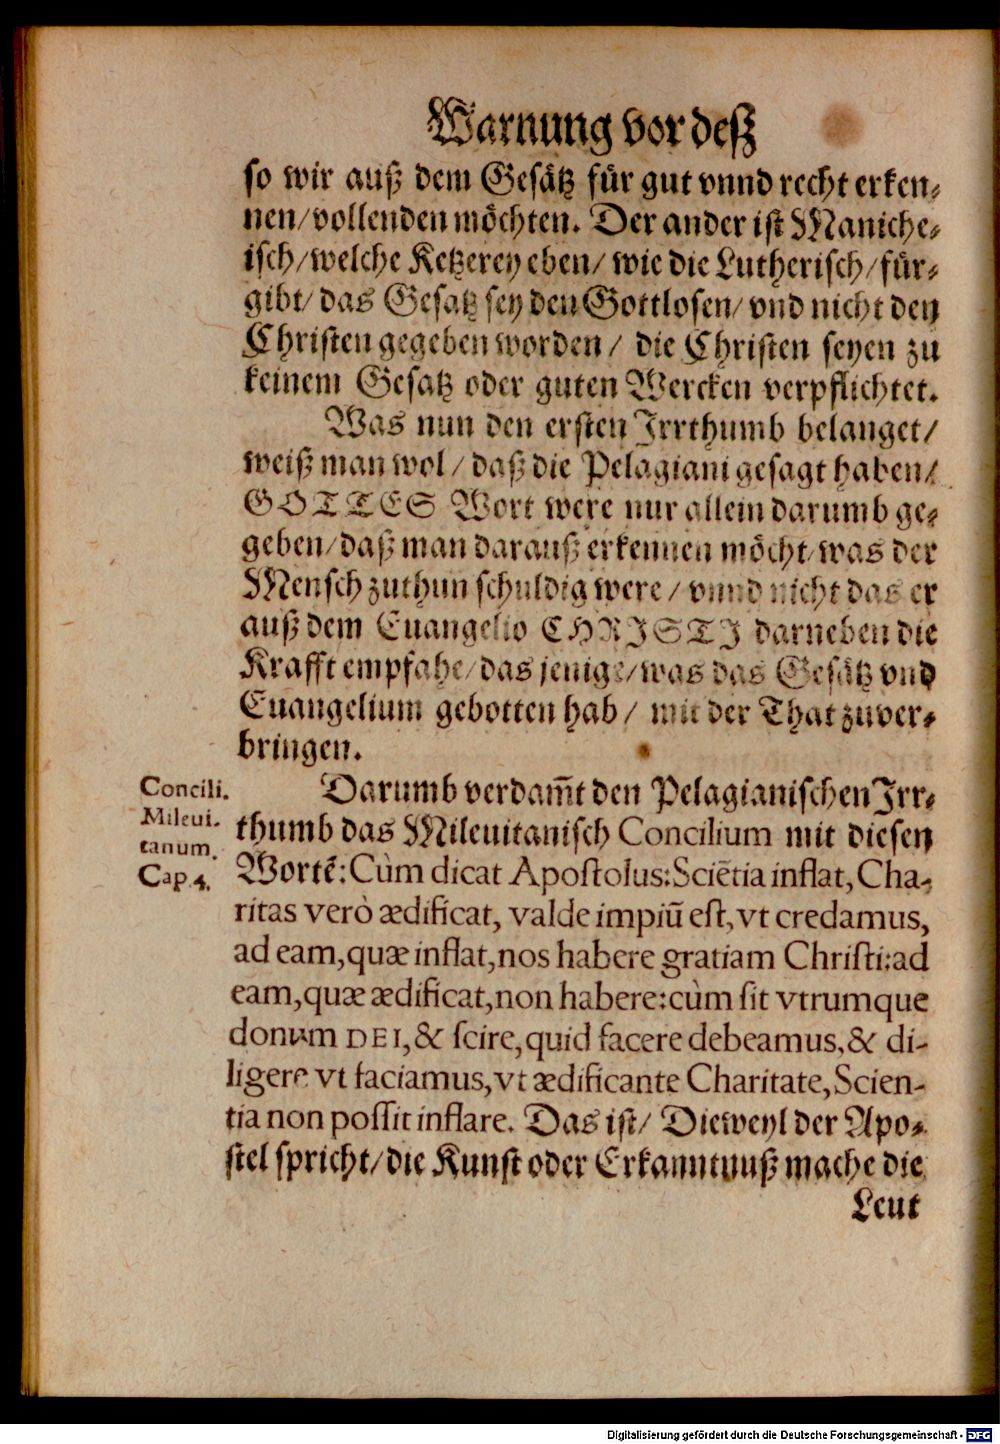 Warnung vor deß
so wir auß dem Gesätz für gut vnnd recht erken-
nen/vollenden möchten. Der ander ist Maniche-
isch/welche Ketzerey eben/ wie die Lutherisch/für-
gibt/ das Gesatz sey den Gottlosen/ vnd nicht den
Christen gegeben worden/ die Christen seyen zu
keinem Gesatz oder guten Wercken verpflichtet.
Was nun den ersten Irrthumb belanget/
weiß man wol/ daß die Pelagiani gesagt haben/
GOTTES Wort were nur allein darumb ge-
geben/daß man darauß erkennen möcht/was der
Mensch zuthun schuldig were/ vnnd nicht das er
auß dem Euangelio CHRISTI darneben die
Krafft empfahe/das jenige/was das Gesätz vnd
Euangelium gebotten hab/ mit der That zuver-
bringen.
Concili.
Mileui-
tanum.
Cap.4.
Darumb verdam̃t den Pelagianischen Irr-
thumb das Mileuitanisch Concilium mit diesen
Wortẽ: Cùm dicat Apostolus: Sciẽtia inflat, Cha-
ritas verò ædificat, valde impiũ est, vt credamus,
ad eam, quæ inflat, nos habere gratiam Christi: ad
eam, quæ ædificat, non habere: cùm sit vtrumque
donum DEI, & scire, quid facere debeamus, & di-
ligere vt faciamus, vt ædificante Charitate, Scien-
tia non possit inflare. Das ist/ Dieweyl der Apo-
stel spricht/die Kunst oder Erkanntnuß mache die
Leut
Digitalisierung gefördert durch die Deutsche Forschungsgemeinschaft - DFG